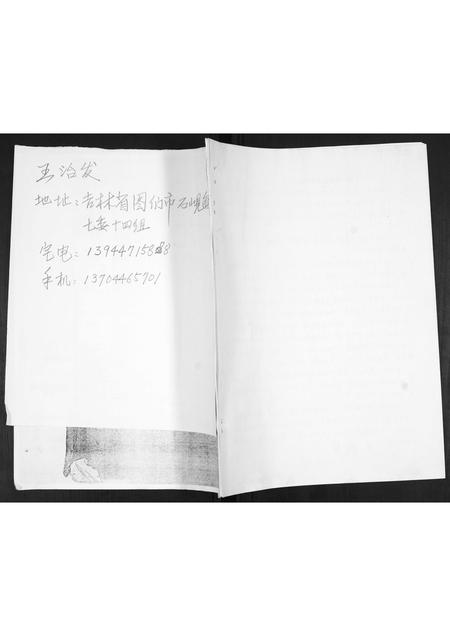 王治发
地址：吉林省图们市石岘镇
七委十四组
宅电：13944715888
手机：13704465701